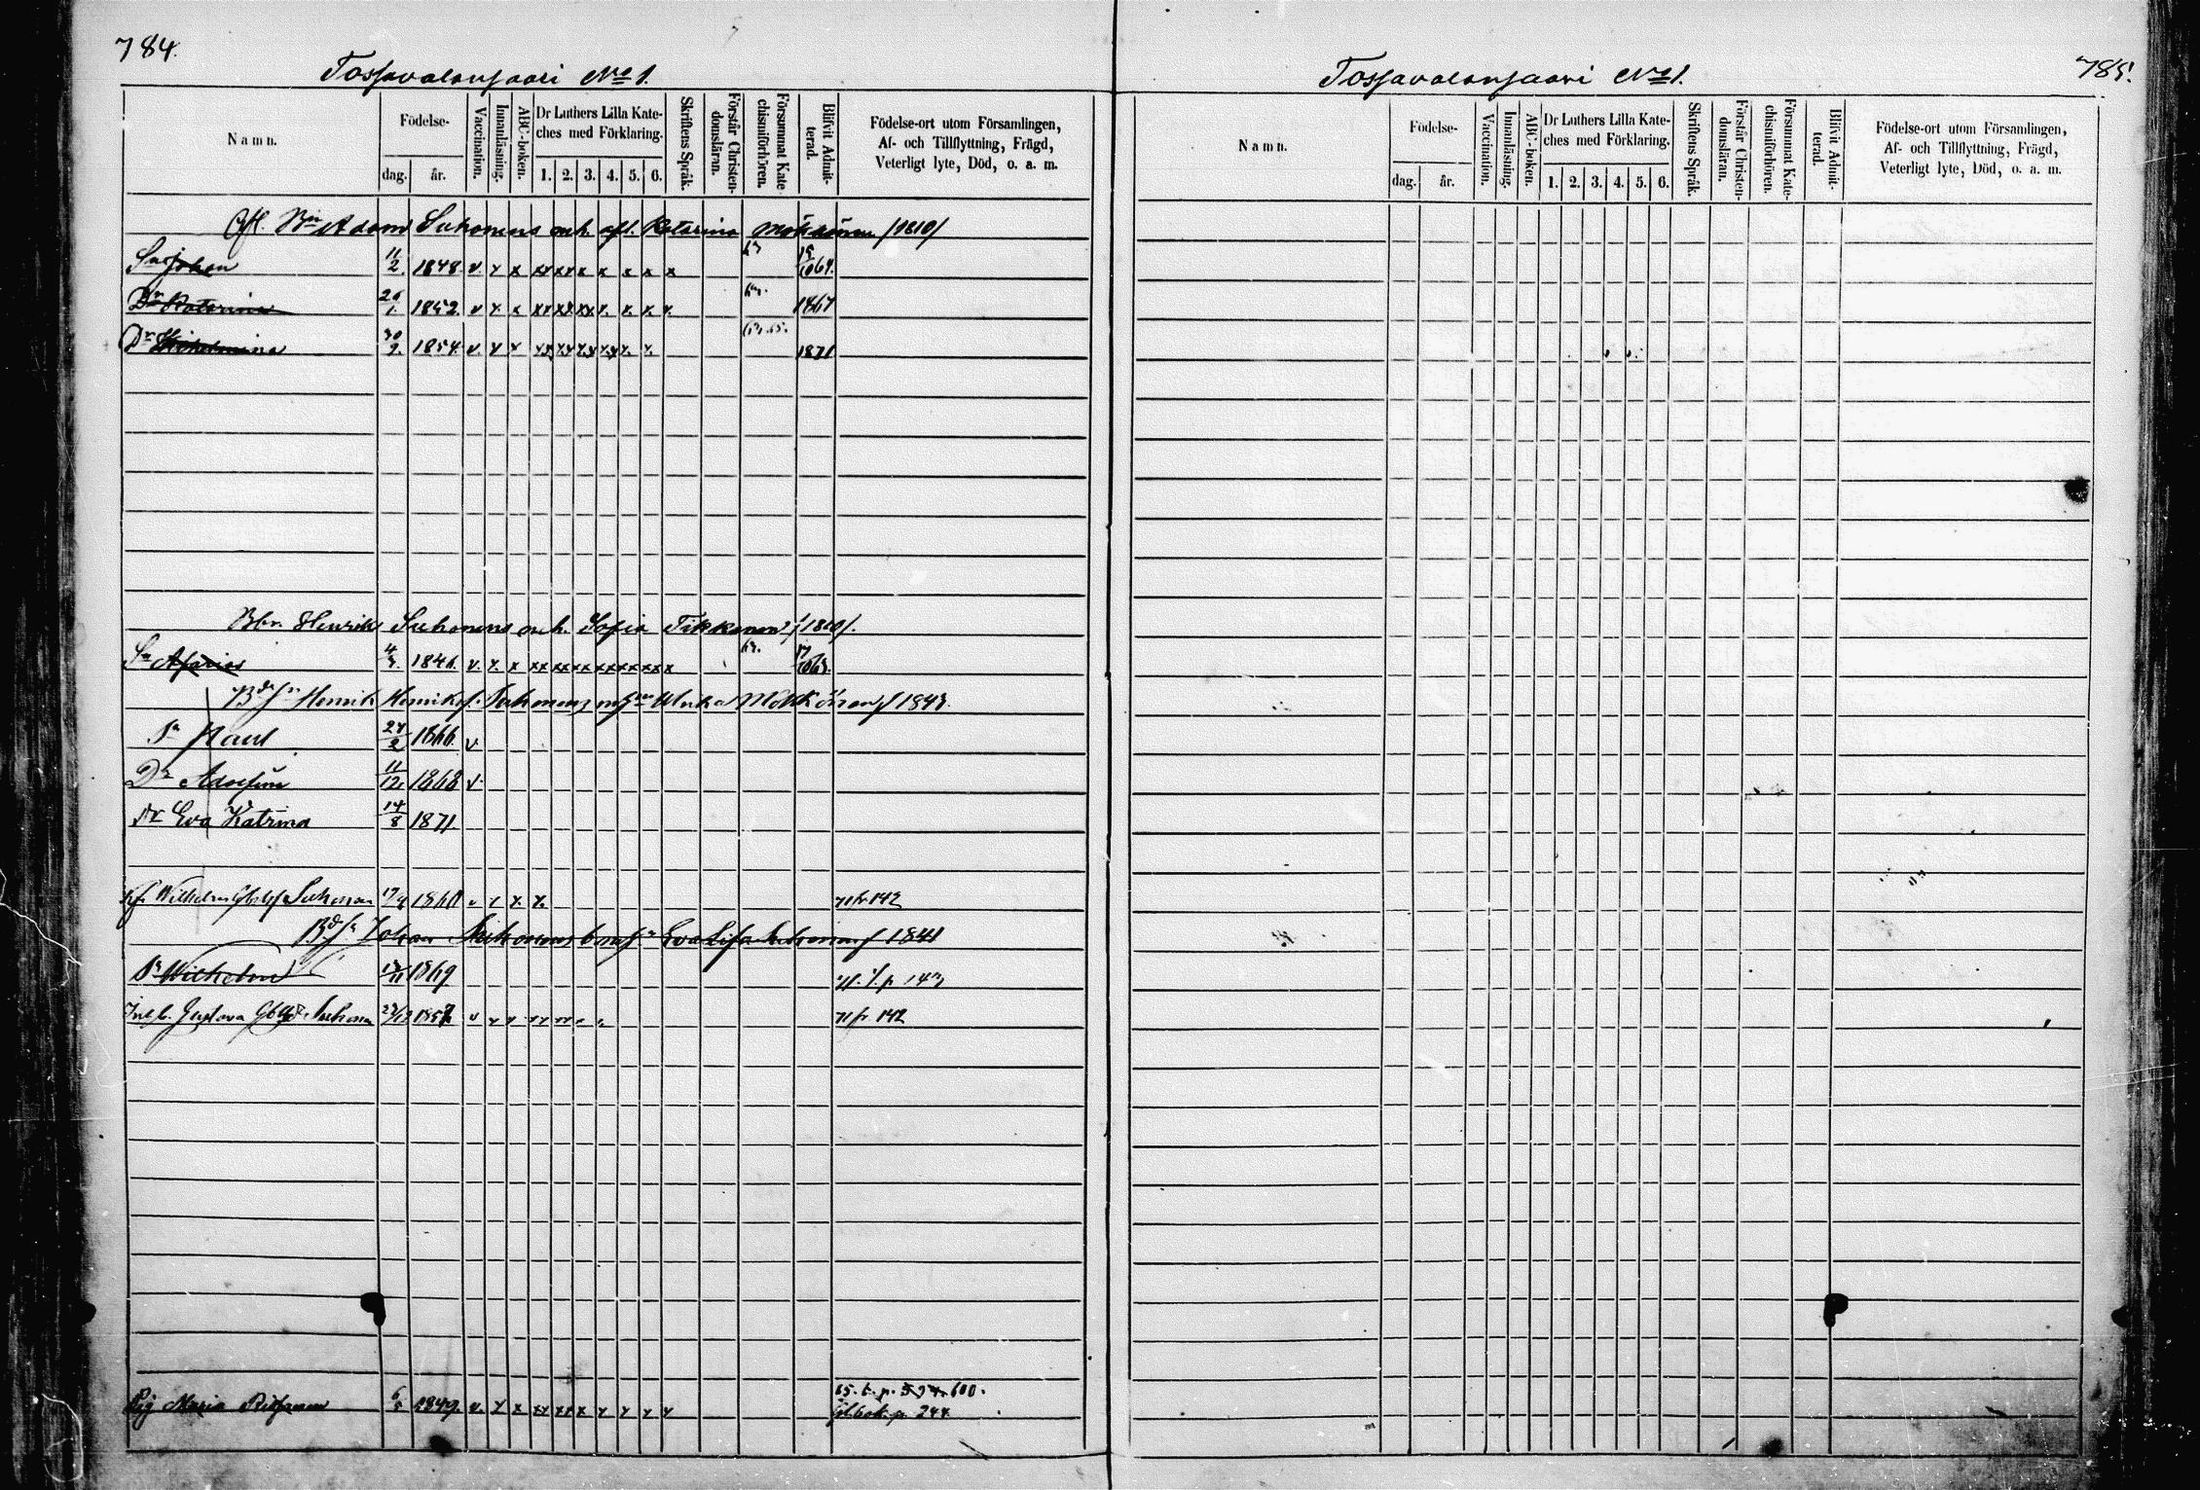 784.
Tossavalansaari No 1.
Namn.
Födelse-
dag.
år.
Vaccination.
Innanläsning.
ABC-boken.
Dr Luthers Lilla Kate-
ches med Förklaring.
1. 2. 3. 4. 5. 6.
Skriftens Språk.
Förstår Christen-
domsläran.
Försummat Kate-
chismiförhören.
Blifvit Admit-
terad.
Födelse-ort utom Församlingen,
Af- och Tillflyttning, Frägd,
Veterligt lyte, Död, o. a. m.
Adam Suhonens enk. Katarina /1810/
Sn Johan 11/2. 1848. v. x x xx xx x x x x x 63 1864.
Dr Katarina 1852. v x. x xx xx xx x. x. x. x. 1867
Dr Wilhelmina 30/9. 1854. v. x x xx xx xx xx x. x. 63.65. 1871
Henrik Suhonens enk. Sofia Tikkanen /1810/.
Sn Asarias 1846. v. x. x xx xx xx xx xx xx x 63.
Henrik Suhonens Ulrika Mökkönen 1843.
Sn Paul 27/2 1866 v.
Dr Adolfin 11/12. 1868 v.
Dr Eva Katrina 14/8 1871.
Wilhelm Suhonen 17/9 1860 v x x. x. 71 fr. 142
Johan Suhonens Eva Lisa Suhonen 1841
Sn Wilhelm 1869
Gustava Suhonen 71 fr. 142
Pig Maria 1849. v. x x xx xx x x x x x 65. t. p. 600.
p. 244
785.
Tossavalansaari No 1.
Namn.
Födelse-
dag.
år.
Vaccination.
Innanläsning.
ABC-boken.
Dr Luthers Lilla Kate-
ches med Förklaring.
1. 2. 3. 4. 5. 6.
Skriftens Språk.
Förstår Christen-
domsläran.
Försummat Kate-
chismiförhören.
Blifvit Admit-
terad.
Födelse-ort utom Församlingen,
Af- och Tillflyttning, Frägd,
Veterligt lyte, Död, o. a. m.